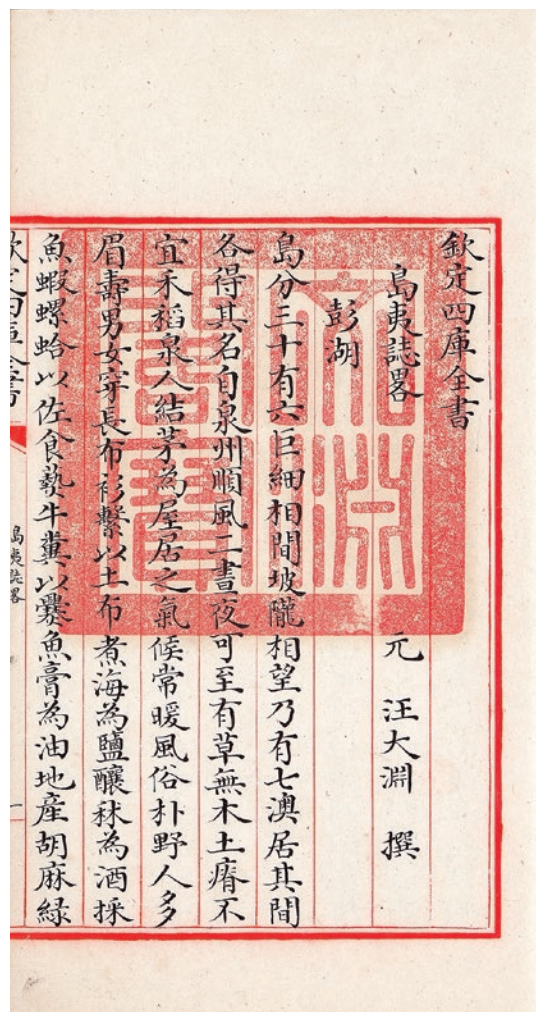 欽定四庫全書
島夷誌畧
元 汪大淵 撰
彭湖
島分三十有六巨細相間坡隴相望乃有七澳居其間
各得其名自泉州順風二晝夜可至有草無木土瘠不
宜禾稻泉人結茅為屋居之氣候常暖風俗朴野人多
眉壽男女穿長布衫繫以土布煮海為鹽釀秫為酒採
魚蝦螺蛤以佐食爇牛糞以爨魚膏為油地產胡麻緑
欽定四庫全書
島夷誌畧
一